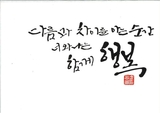 다름의 차이를 아는 순간
너와 나는
함께 행복